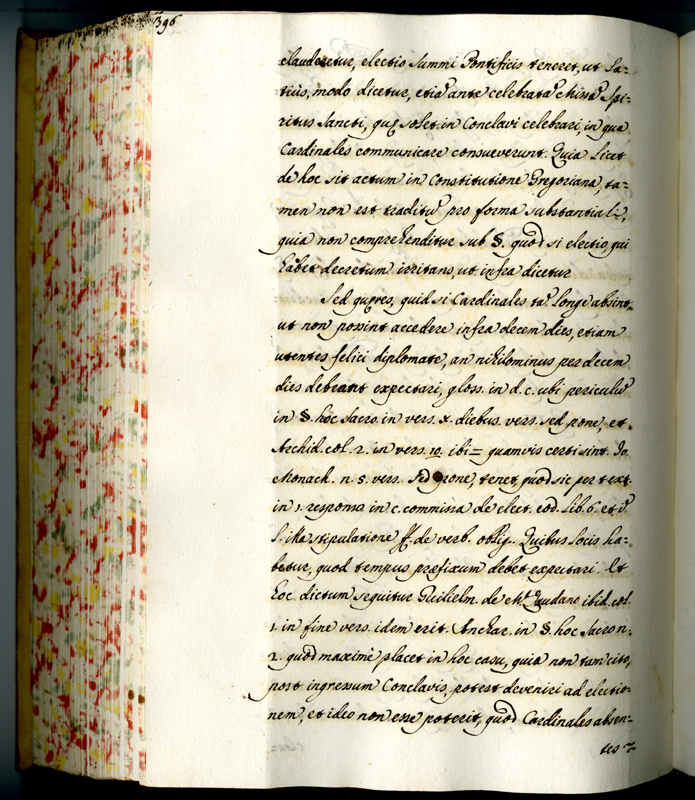 396
clauderetur, electio summi Pontificis teneret, ut la=
tius, modo dicetur, etiā ante celebratā Missā Spi=
ritus Sancti, quę solet in Conclavi celebrari, in qua
Cardinales communicare consueverunt. Quia licet
de hoc sit actum in Constitutione Gregoriana, ta=
men non est traditū pro forma substantiali,
quia non comprehenditur sub §. quod si electio, qui
habet decretum irritans, ut infra dicetur
Sed quęres, quid si Cardinales tā longe absint,
ut non possint accedere infra decem dies, etiam
utentes felici diplomate, an nihilominus per decem
dies debeant expectari, gloss. in d. c. ubi periculū
in §. hoc sacro in vers. x. diebus. vers. sed pone, et
Archid. col. 2. in vers. 10. ibi = quamvis certi sint. Jo.
Monach. n. 5. vers. sed pone, tenet quod sic per text.
in 1. responso in c. commissa de elect. eod. lib. 6. et ī
l. illa stipulatione ff. de verb. oblig. Quibus locis ha=
betur, quod tempus præfixum debet expectari. Et
hoc dictum sequitur Guilielm. de Mt. Laudano ibid. col.
1. in fine vers. idem erit. Anchar. in §. hoc sacro n.
2. quod maximè placet in hoc casu, quia non tam citò,
post ingressum Conclavis, potest deveniri ad electio=
nem, et ideo non esse poterit, quod Cardinales absen=
tes